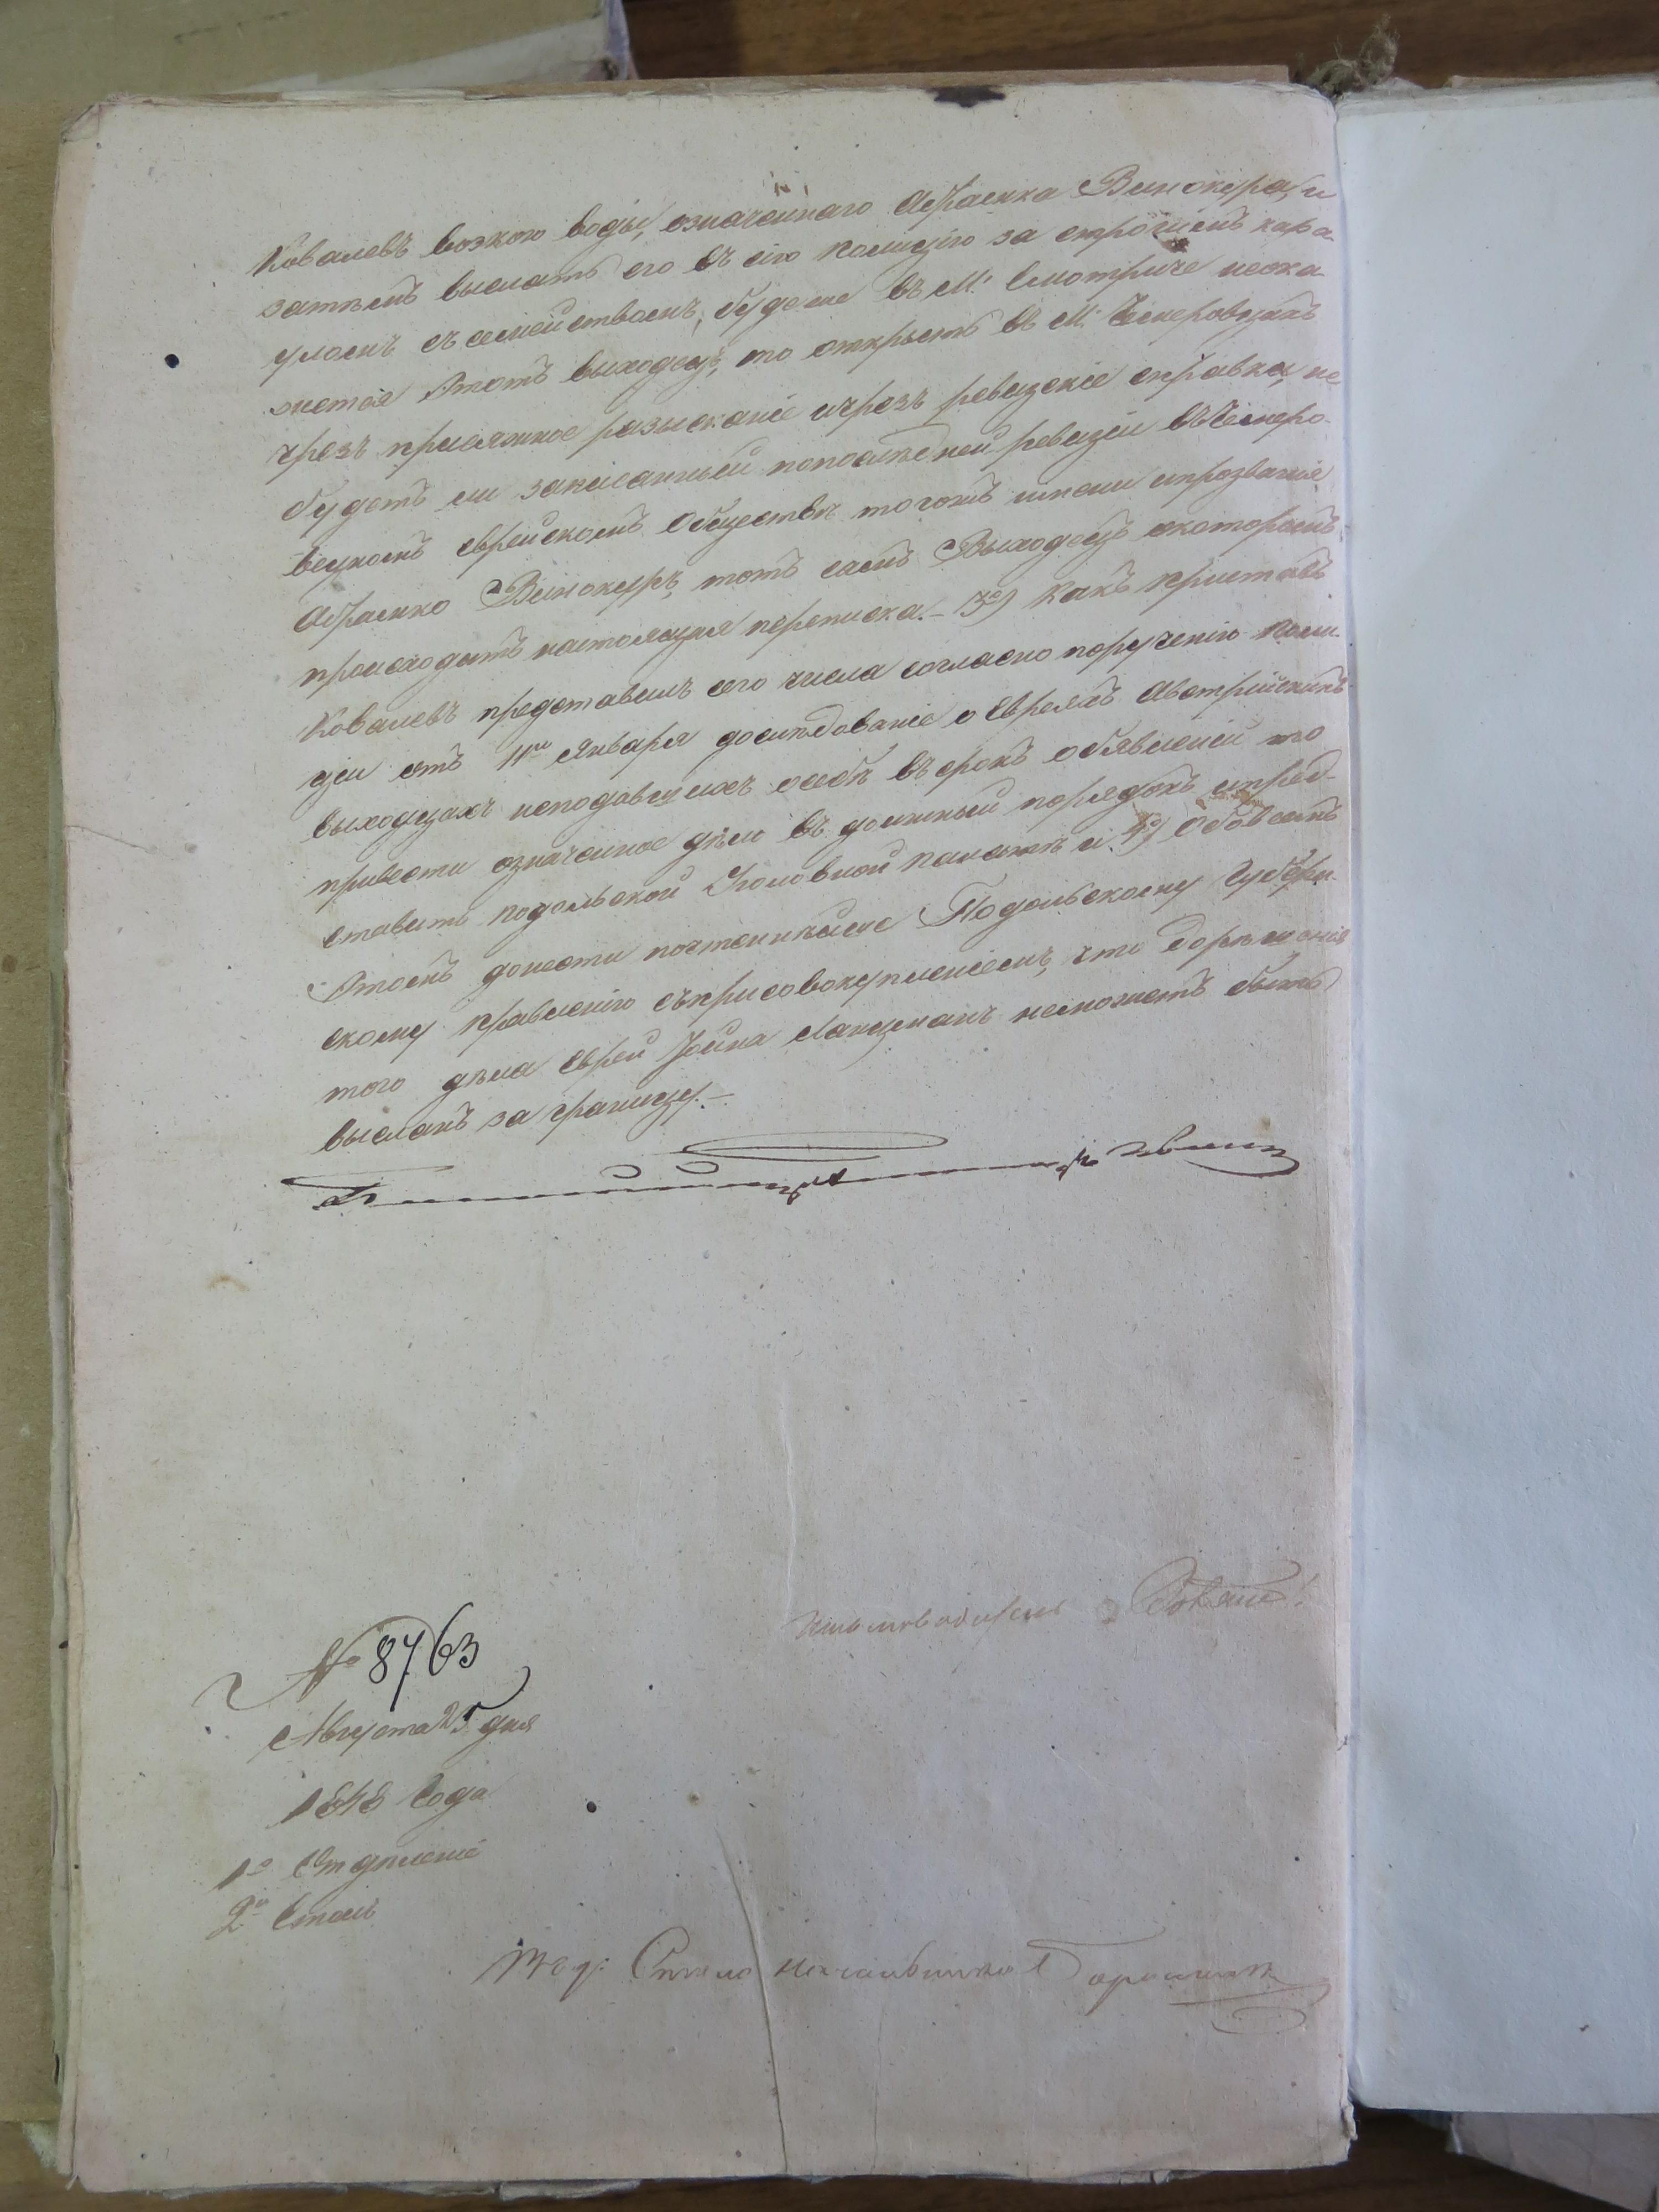 Ковалевъ возкою воды, означеннаго Абрамка Винокура, и
затѣмъ выслать его въ сію Полицію за строгимъ кара-
уломъ съ семействомъ, буде же въ М. Смотриче неока-
жется этотъ выходецъ, то открыть въ М. Чемеровцахъ
чрезъ присяжное разысканіе и чрезъ ревизскіе справки, не
будетъ ли записанный попослѣдней ревизіи въ Чемеро-
вецкомъ Еврейскомъ Обществѣ тогожъ имени и прозванія
Абрамко Винокуръ, тотъ самъ Выходецъ о которомъ
происходитъ настоящая переписка. – 3е) Какъ Приставъ
Ковалевъ представилъ сего числа согласно порученію Поли-
ціи отъ 11го Января дослѣдованіе о Евреяхъ Австрійскихъ
выходцахъ неподавшихъ о себѣ въ срокъ объявленій то
привести означенное дѣло въ должный порядокъ и пред-
ставить Подольской Уголовной Палатѣ и 4е) О всемъ
этомъ донести почтеннѣйше Подольскому Губерн-
скому Правленію съ присовокупленіемъ, что до рѣшенія
того дѣла Еврей Іойна Ланцманъ неможетъ быть
высланъ за границу. –
№ 8763
Августа 25 дня
1848 Года
1е Отдѣленіе
2й Столъ